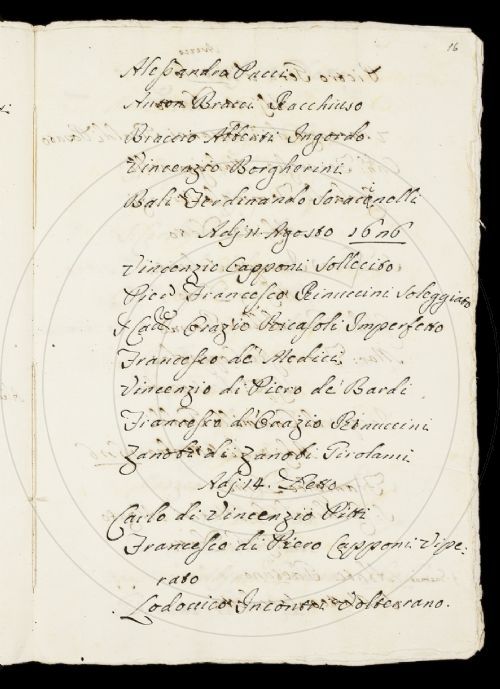 16
Alessandro Pucci
Anton Bracci Racchiuso
Braccio Alberti Ingordo.
Vincenzio Borgherini
Bali Ferdinando Soracinelli
Adj 11 Agosto 1626
Vincenzio Capponi Sollecito
Pier Francesco Rinuccini Soleggiato
Orazio Ricasoli Imperfetto
Francesco de' Medici
Vincenzio di Piero de' Bardi
Francesco d'Orazio Rinuccini
Zanobi di Zanobi Girolami
Adj 14. Detto.
Carlo di Vincenzio Pitti
Francesco di Piero Capponi Vipe:
rato
Lodovico Incontri Volterrano.